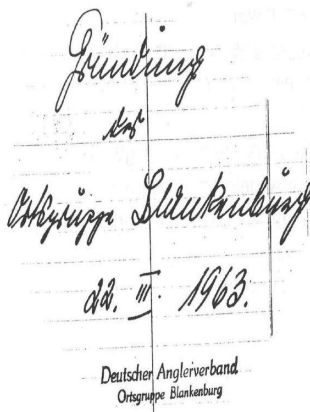 Gründung
der
Ortsgruppe Blankenburg
22. III. 1963.
Deutscher Anglerverband
Ortsgruppe Blankenburg